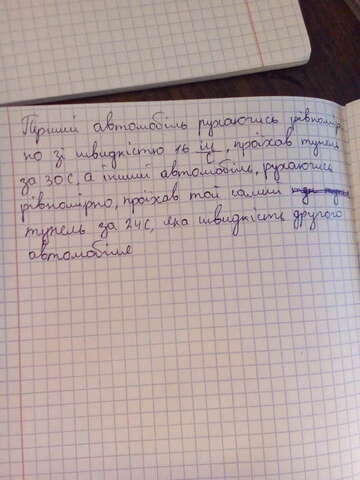 Перший автомобіль рухаючись рівномір
но зі швидкістю 16 м/с, проїхав тунель
за 30 с, а інший автомобіль, рухаючись
рівномірно, проїхав той самий
тунель за 24 с, яка швидкість другого
автомобіля